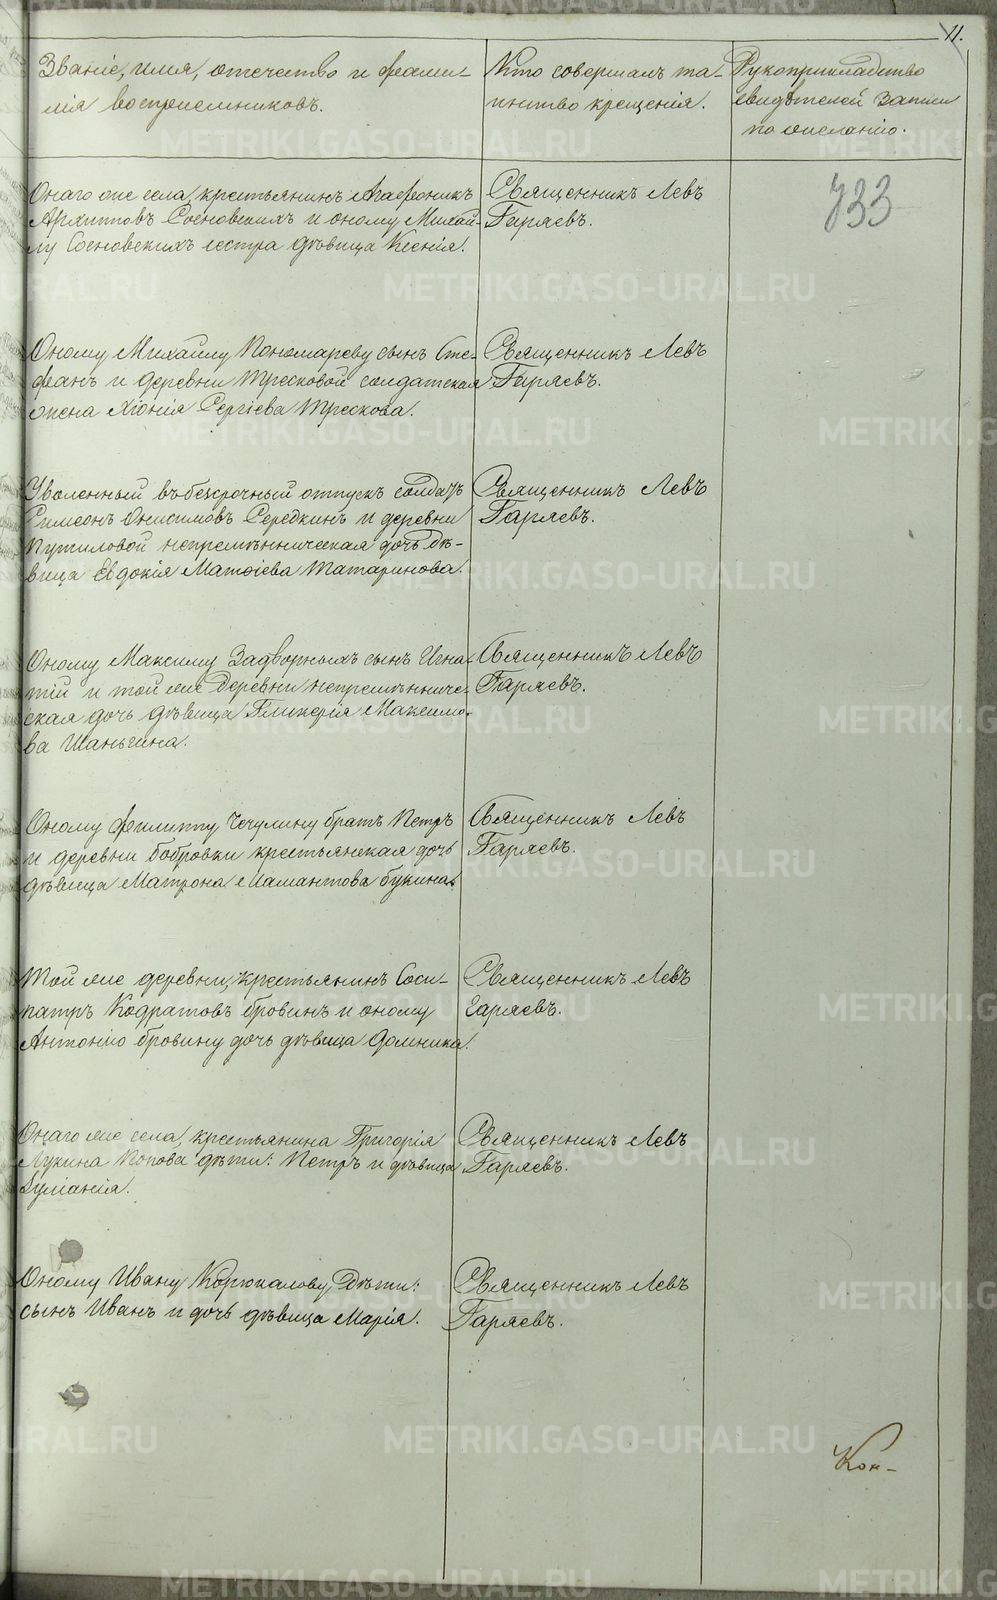 11.
Званіе, имя, отечество и фами-
лія воспріемниковъ.
Кто совершалъ та-
инство крещенія.
Рукоприкладство
свидѣтелей записи
по желанію.
733
Онаго же села, крестьянинъ Агафоникъ
Архиповъ Сосновскихъ и оному Михаи-
лу Сосновскихъ сестра дѣвица Ксенія.
Священникъ Левъ
Гаряевъ.
Оному Михаилу Пономареву сынъ Сте-
фанъ и деревни Тресковой солдатская
жена Хіонія Сергіева Трескова.
Священникъ Левъ
Гаряевъ.
Уволенный въ безсрочный отпускъ солдатъ
Симеонъ Онисимовъ Середкинъ и деревни
Путиловой непремѣнническая дочь дѣ-
вица Евдокія Матѳіева Татаринова.
Священникъ Левъ
Гаряевъ.
Оному Максиму Задворныхъ сынъ Игна-
тій и той же деревни непремѣнниче-
ская дочь дѣвица Гликерія Максимо-
ва Шаньгина.
Священникъ Левъ
Гаряевъ.
Оному Филиппу Чечулину братъ Петръ
и деревни Бобровки крестьянская дочь
дѣвица Матрона Мамантова Букина.
Священникъ Левъ
Гаряевъ.
Той же деревни, крестьянинъ Соси-
патръ Кодратовъ Бровинъ и оному
Антонію Бровину дочь дѣвица Домника.
Священникъ Левъ
Гаряевъ.
Онаго же села, крестьянина Григорія
Лукина Попова дѣти: Петръ и дѣвица
Іуліанія.
Священникъ Левъ
Гаряевъ.
Оному Ивану Корюкалову, дѣти:
сынъ Иванъ и дочь дѣвица Марія.
Священникъ Левъ
Гаряевъ.
Кон-
METRIKI.GASO-URAL.RU